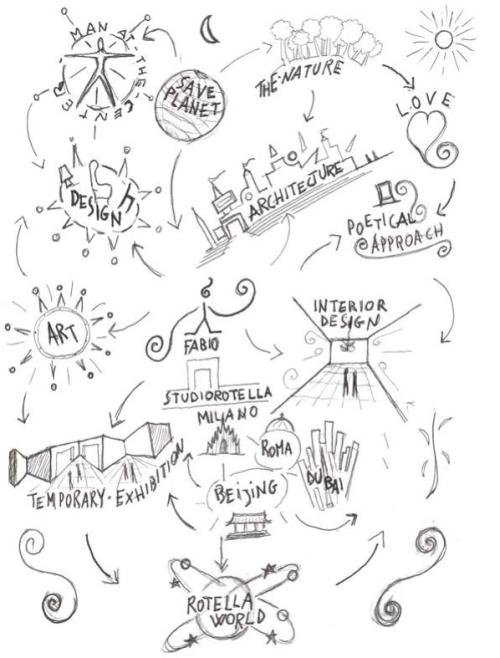 MAN AT THE CENTER
SAVE
PLANET
THE NATURE
LOVE
DESIGN
ARCHITECTURE
POETICAL
APPROACH
ART
FABIO
INTERIOR
DESIGN
STUDIOROTELLA
MILANO
ROMA
DUBAI
BEIJING
TEMPORARY·EXHIBITION
ROTELLA
WORLD